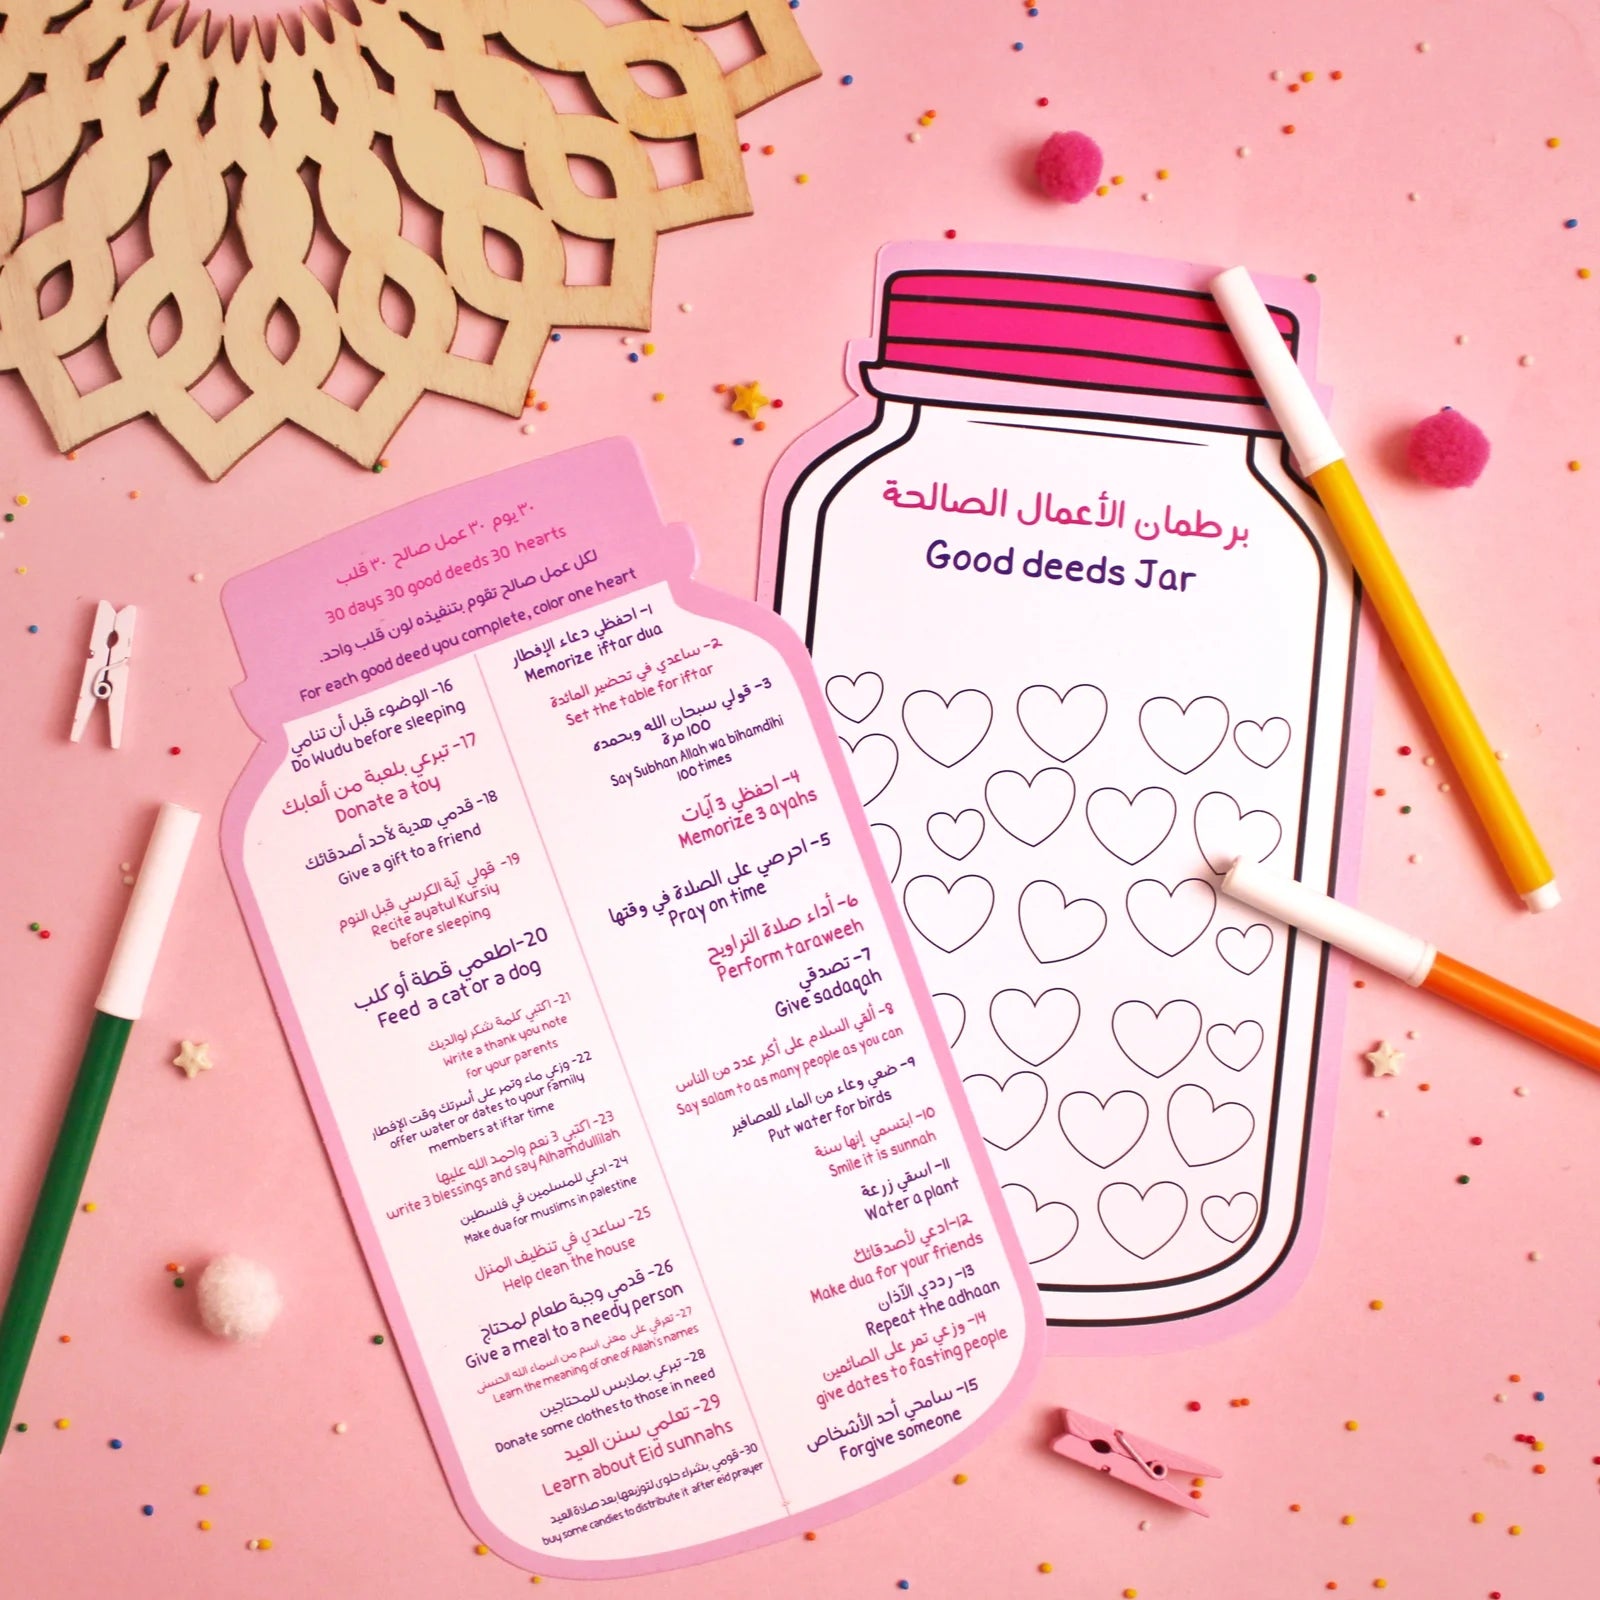 برطمان الأعمال الصالحة
Good deeds Jar
٣٠ يوم ٣٠ عمل صالح ٣٠ قلب
30 days 30 good deeds 30 hearts
لكل عمل صالح تقوم بتنفيذه لون قلب واحد.
For each good deed you complete, color one heart
١- احفظي دعاء الإفطار
Memorize iftar dua
٢- ساعدي في تحضير المائدة
Set the table for iftar
٣- قولي سبحان الله وبحمده
100 مرة
Say Subhan Allah wa bihamdihi
100 times
٤- احفظي 3 آيات
Memorize 3 ayahs
٥- احرصي على الصلاة في وقتها
Pray on time
٦- أداء صلاة التراويح
Perform taraweeh
٧- تصدقي
Give sadaqah
٨- ألقي السلام على أكبر عدد من الناس
Say salam to as many people as you can
٩- ضعي وعاء من الماء للعصافير
Put water for birds
١٠- ابتسمي إنها سنة
Smile it is sunnah
١١- اسقي زرعة
Water a plant
١٢- ادعي لأصدقائك
Make dua for your friends
١٣- رددي الآذان
Repeat the adhaan
١٤- وزعي تمر على الصائمين
give dates to fasting people
١٥- سامحي أحد الأشخاص
Forgive someone
16- الوضوء قبل أن تنامي
Do Wudu before sleeping
17- تبرعي بلعبة من ألعابك
Donate a toy
18- قدمي هدية لأحد أصدقائك
Give a gift to a friend
19- قولي آية الكرسي قبل النوم
Recite ayatul Kursiy
before sleeping
20- اطعمي قطة أو كلب
Feed a cat or a dog
21- اكتبي كلمة شكر لوالديك
Write a thank you note
for your parents
22- وزعي ماء وتمر على أسرتك وقت الإفطار
offer water or dates to your family
members at iftar time
23- اكتبي 3 نعم واحمد الله عليها
write 3 blessings and say Alhamdullilah
24- ادعي للمسلمين في فلسطين
Make dua for muslims in palestine
25- ساعدي في تنظيف المنزل
Help clean the house
26- قدمي وجبة طعام لمحتاج
Give a meal to a needy person
27- تعرفي على معنى اسم من اسماء الله الحسنى
Learn the meaning of one of Allah's names
28- تبرعي بملابس للمحتاجين
Donate some clothes to those in need
29- تعلمي سنن العيد
Learn about Eid sunnahs
30- قومي بشراء حلوى لتوزيعها بعد صلاة العيد
buy some candies to distribute it after eid prayer